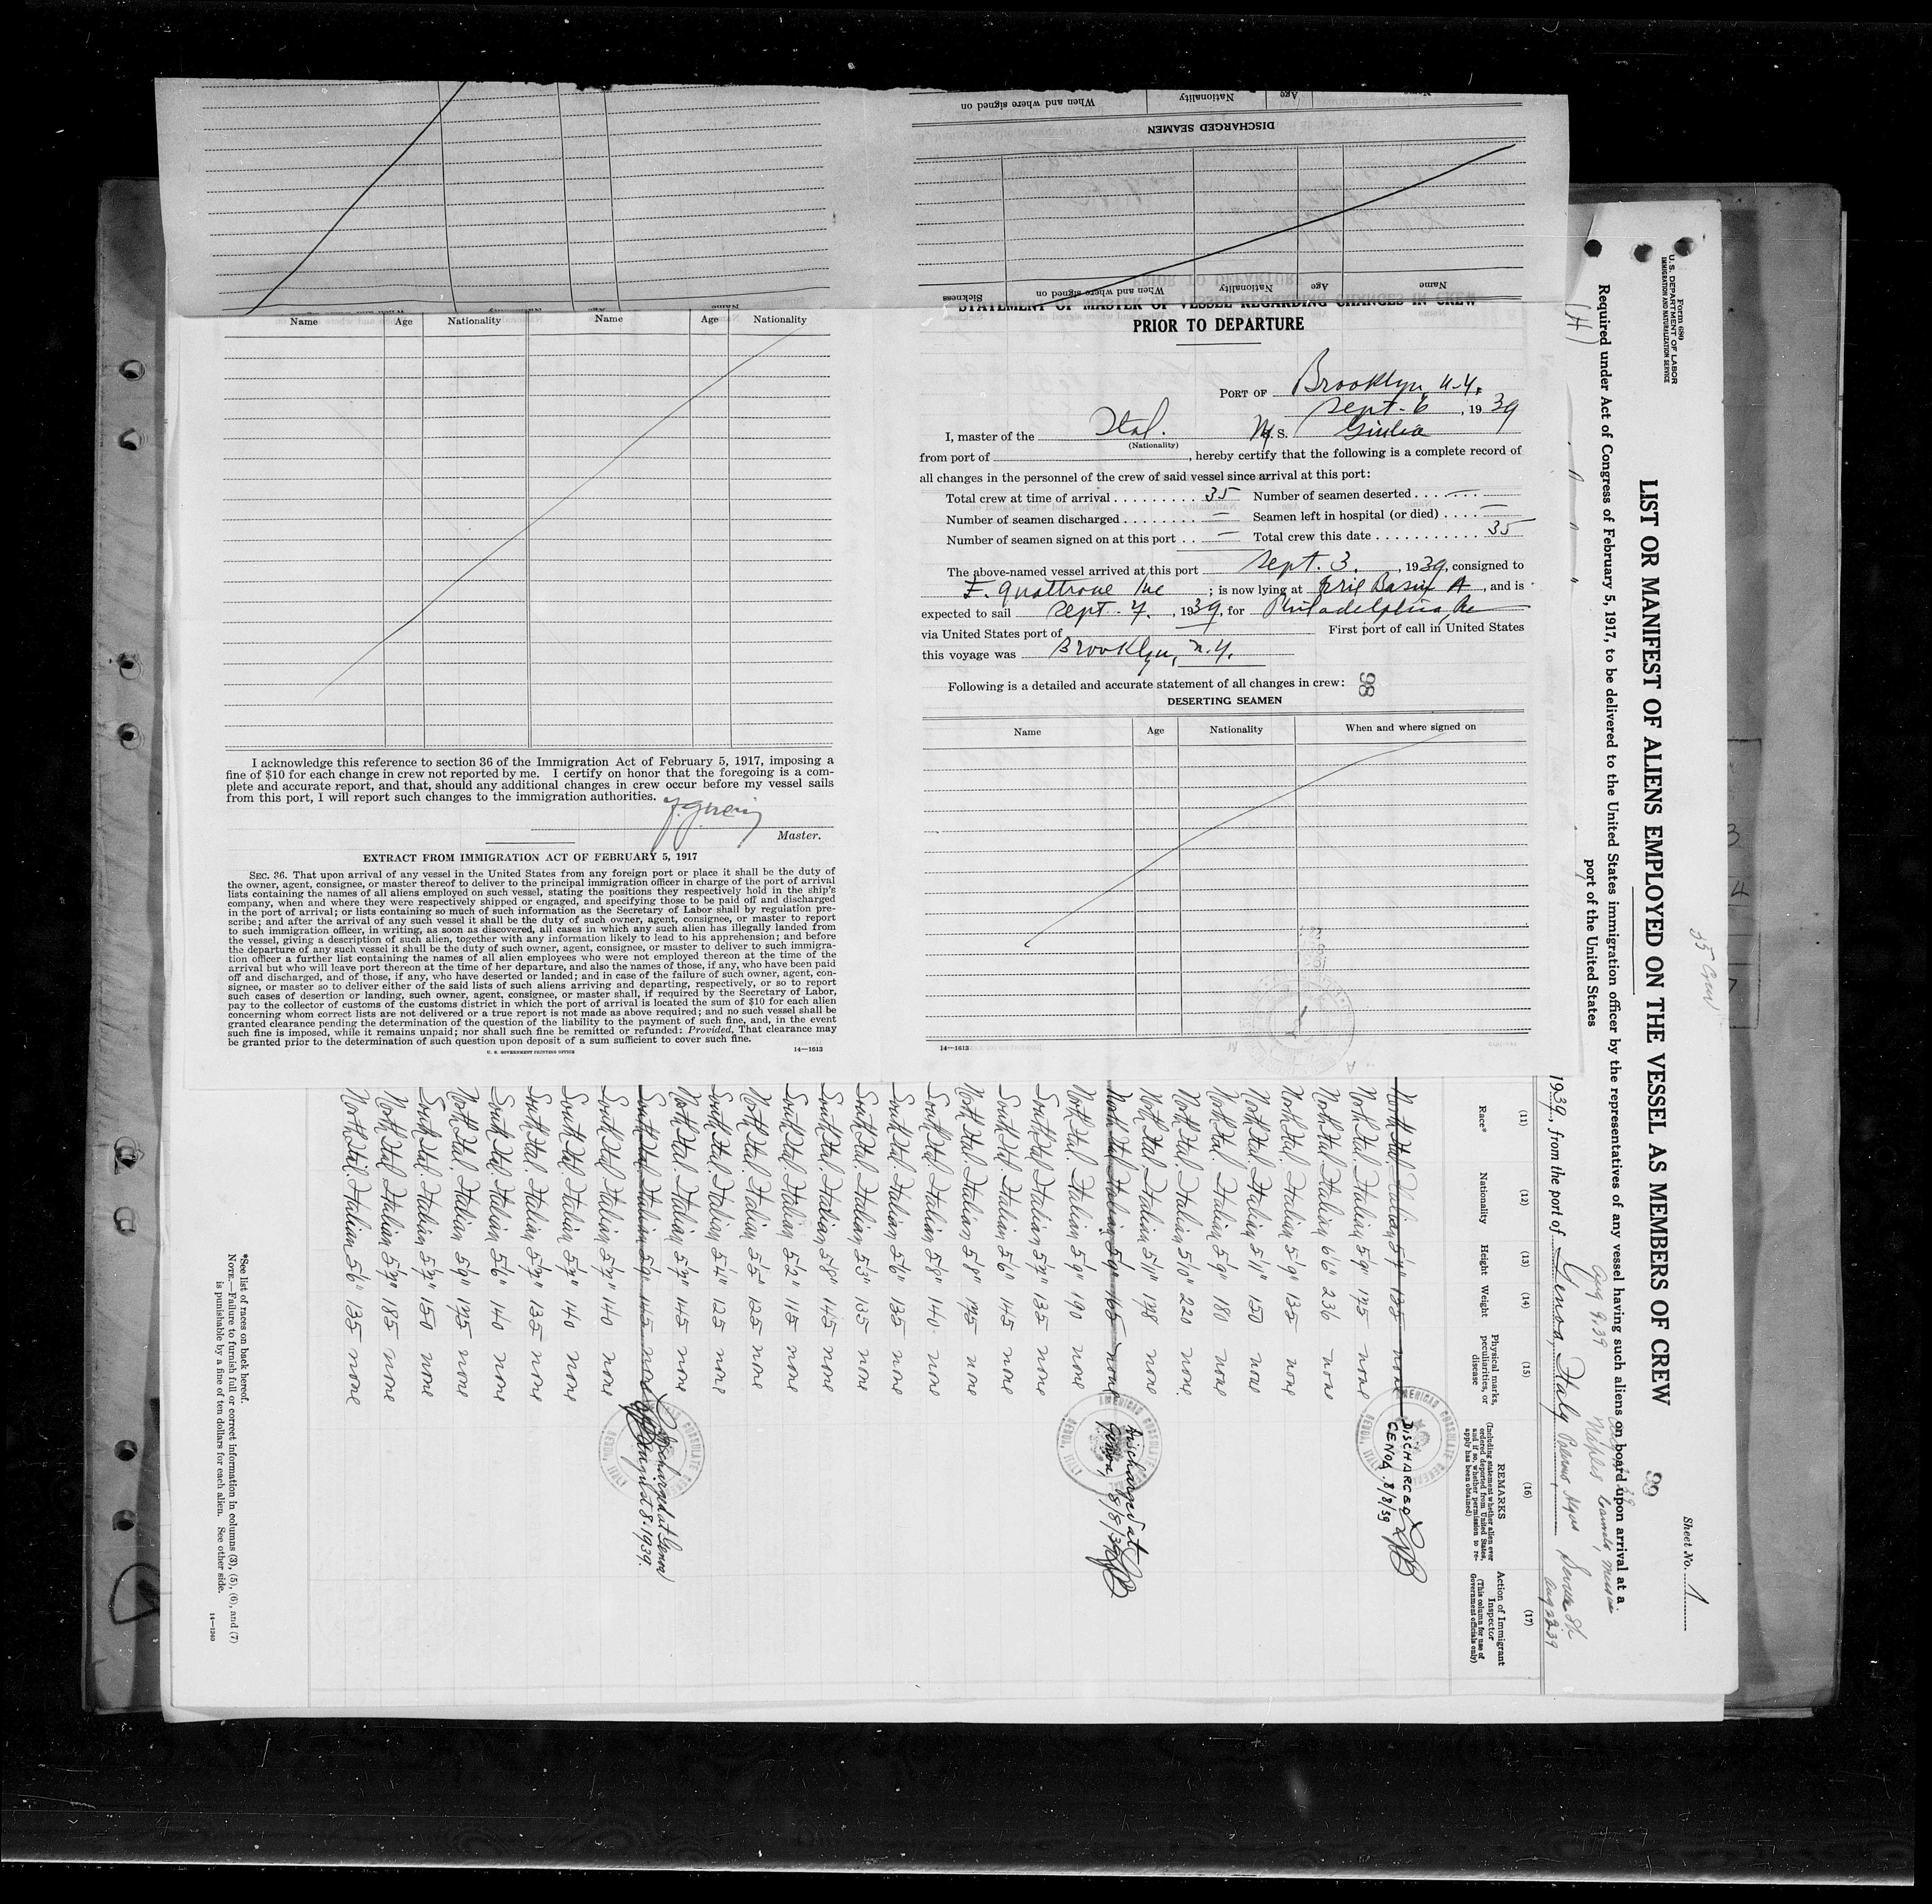 When and where signed on Nationality Age Name
DISCHARGED SEAMEN
Sickness When and where signed on Nationality Age Name
Name Age Nationality Name Age Nationality
I acknowledge this reference to section 36 of the Immigration Act of February 5, 1917, imposing a
fine of $10 for each change in crew not reported by me. I certify on honor that the foregoing is a com-
plete and accurate report, and that, should any additional changes in crew occur before my vessel sails
from this port, I will report such changes to the immigration authorities.
Master.
EXTRACT FROM IMMIGRATION ACT OF FEBRUARY 5, 1917
SEC. 36. That upon arrival of any vessel in the United States from any foreign port or place it shall be the duty of
the owner, agent, consignee, or master thereof to deliver to the principal immigration officer in charge of the port of arrival
lists containing the names of all aliens employed on such vessel, stating the positions they respectively hold in the ship's
company, when and where they were respectively shipped or engaged, and specifying those to be paid off and discharged
in the port of arrival; or lists containing so much of such information as the Secretary of Labor shall by regulation pre-
scribe; and after the arrival of any such vessel it shall be the duty of such owner, agent, consignee, or master to report
to such immigration officer, in writing, as soon as discovered, all cases in which any such alien has illegally landed from
the vessel, giving a description of such alien, together with any information likely to lead to his apprehension; and before
the departure of any such vessel it shall be the duty of such owner, agent, consignee, or master to deliver to such immigra-
tion officer a further list containing the names of all alien employees who were not employed thereon at the time of the
arrival but who will leave port thereon at the time of her departure, and also the names of those, if any, who have been paid
off and discharged, and of those, if any, who have deserted or landed; and in case of the failure of such owner, agent, con-
signee, or master so to deliver either of the said lists of such aliens arriving and departing, respectively, or so to report
such cases of desertion or landing, such owner, agent, consignee, or master shall, if required by the Secretary of Labor,
pay to the collector of customs of the customs district in which the port of arrival is located the sum of $10 for each alien
concerning whom correct lists are not delivered or a true report is not made as above required; and no such vessel shall be
granted clearance pending the determination of the question of the liability to the payment of such fine, and, in the event
such fine is imposed, while it remains unpaid; nor shall such fine be remitted or refunded: Provided, That clearance may
be granted prior to the determination of such question upon deposit of a sum sufficient to cover such fine.
U. S. GOVERNMENT PRINTING OFFICE 14—1613
STATEMENT OF MASTER OF VESSEL REGARDING CHANGES IN CREW
PRIOR TO DEPARTURE
PORT OF Brooklyn N.Y.
Sept. 6, 1939
I, master of the Ital. M.S. Giulia
(Nationality)
from port of , hereby certify that the following is a complete record of
all changes in the personnel of the crew of said vessel since arrival at this port:
Total crew at time of arrival 35 Number of seamen deserted —
Number of seamen discharged — Seamen left in hospital (or died) —
Number of seamen signed on at this port — Total crew this date 35
The above-named vessel arrived at this port Sept. 3, 1939, consigned to
F. Quattrone Inc ; is now lying at Erie Basin, and is
expected to sail Sept. 7, 1939, for Philadelphia, Pa
via United States port of First port of call in United States
this voyage was Brooklyn, N.Y.
Following is a detailed and accurate statement of all changes in crew: 98
DESERTING SEAMEN
Name Age Nationality When and where signed on
14—1613
Form 680
U. S. DEPARTMENT OF LABOR
IMMIGRATION AND NATURALIZATION SERVICE
Sheet No. 1
LIST OR MANIFEST OF ALIENS EMPLOYED ON THE VESSEL AS MEMBERS OF CREW 99
35 Crew
Required under Act of Congress of February 5, 1917, to be delivered to the United States immigration officer by the representatives of any vessel having such aliens on board upon arrival at a
port of the United States
(H)
Aug 9.39 Naples
1939, from the port of Genoa, Italy
Aug 22 39
(11) (12) (13) (14) (15) (16) (17)
Race* Nationality Height Weight Physical marks, peculiarities, or disease
REMARKS
(Including statement whether alien ever ordered deported from United States, and if so, whether permission to re-apply has been obtained)
Action of Immigrant Inspector
(This column for use of Government officials only)
North Ital. Italian 5'7" 135 none DISCHARGED GENOA. 8/8/39
North Ital. Italian 5'9" 175 none
North Ital. Italian 6'6" 236 none
North Ital. Italian 5'9" 135 none
North Ital. Italian 5'11" 150 none
North Ital. Italian 5'9" 180 none
North Ital. Italian 5'10" 220 none
North Ital. Italian 5'11" 178 none
North Ital. Italian 5'9" 165 none Discharged at Genoa, 8/8/39
North Ital. Italian 5'9" 190 none
South Ital. Italian 5'7" 135 none
South Ital. Italian 5'6" 145 none
North Ital. Italian 5'8" 175 none
South Ital. Italian 5'8" 140 none
South Ital. Italian 5'6" 135 none
South Ital. Italian 5'5" 135 none
South Ital. Italian 5'8" 145 none
South Ital. Italian 5'2" 115 none
North Ital. Italian 5'5" 125 none
South Ital. Italian 5'4" 125 none
North Ital. Italian 5'7" 145 none
South Ital. Italian 5'9" 145 none Discharged at Genoa August 8-1939.
South Ital. Italian 5'7" 140 none
South Ital. Italian 5'7" 140 none
South Ital. Italian 5'7" 135 none
South Ital. Italian 5'6" 140 none
North Ital. Italian 5'9" 175 none
South Ital. Italian 5'7" 150 none
North Ital. Italian 5'7" 185 none
North Ital. Italian 5'6" 135 none
AMERICAN CONSULATE GENERAL
*See list of races on back hereof.
NOTE.—Failure to furnish full or correct information in columns (3), (5), (6), and (7)
is punishable by a fine of ten dollars for each alien. See other side.
14—1240